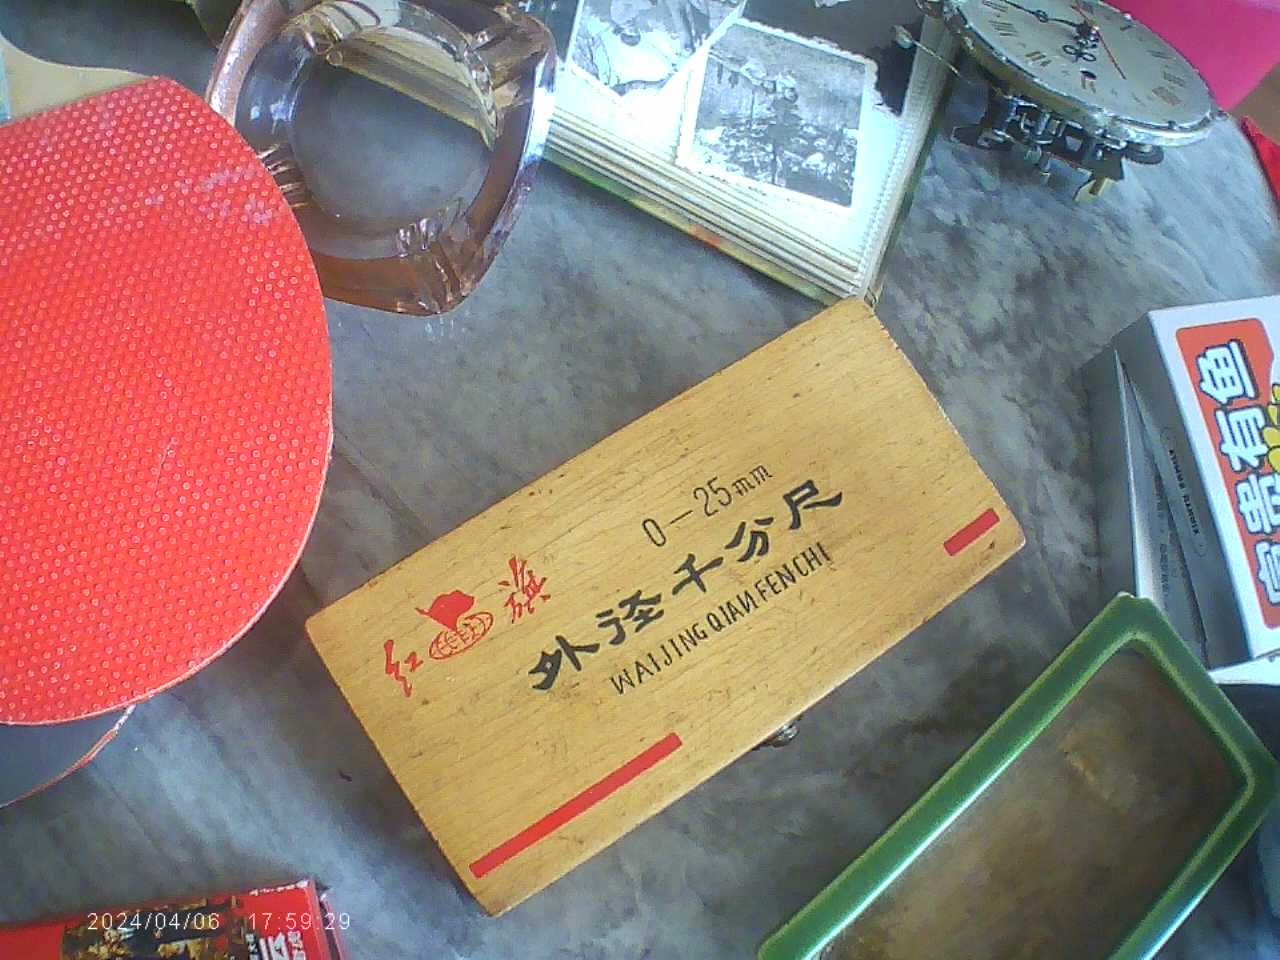 0—25mm
红旗
外径千分尺
WAIJING QIANFENCHI
富贵有鱼
2024/04/06 17:59:29